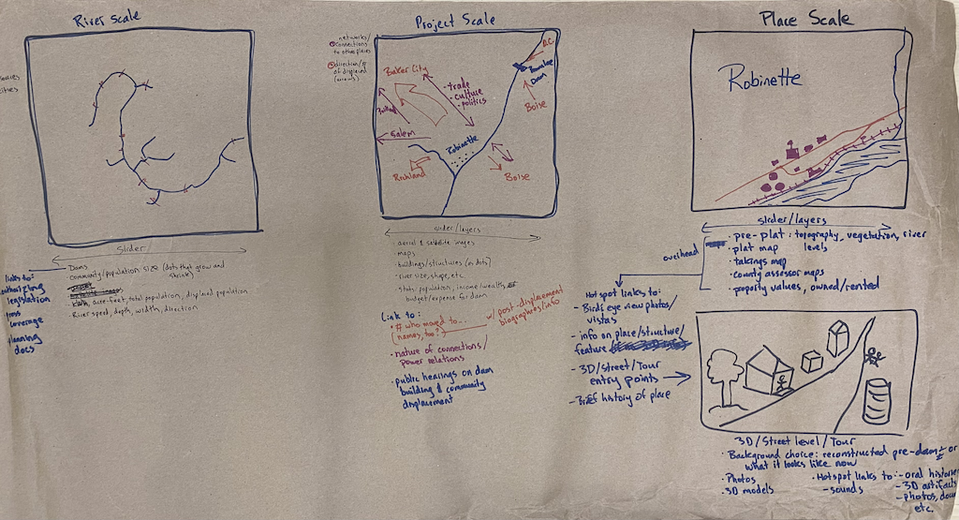 River scale
Slider
Dams
Community/population size (dots that grow and
shrink)
acre-feet, total population, displaced population
River speed, depth, width, direction
links to:
authorizing
legislation
coverage
planning
docs
Project Scale
networks/
connections
to other places
direction/
of displaced
Baker City
• trade
• culture
• politics
Salem
Richland
Robinette
Boise
Boise
D.C.
Brownlee
Dam
slider/layers
• aerial & satellite images
• maps
• buildings/structures (or dots)
• river size, shape, etc.
• stats: population, income/wealth,
budget/expense for dam
Link to:
• # who moved to...
(names, too?)
w/ post-displacement
biographies/info
• nature of connections/
power relations
• public hearings on dam
building & community
displacement
Place Scale
Robinette
slider/layers
overhead
maps
• pre-plat: topography, vegetation, river
levels
• plat map
• takings map
• county assessor maps
• property values, owned/rented
Hotspot links to:
- Birds eye view photos/
vistas
- info on place/structure/
feature
- 3D/street/Tour
entry points
- Brief history of place
3D/Street level/Tour
• Background choice: reconstructed pre-dam or
what it looks like now
• Photos
• 3D models
• Hotspot links to:
- sounds
- oral histories
- 3D artifacts
- photos, docs
etc.